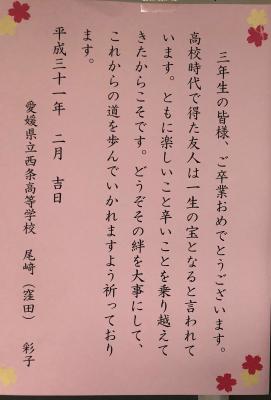 三年生の皆様、ご卒業おめでとうございます。
高校時代で得た友人は一生の宝となると言われて
います。ともに楽しいこと辛いことを乗り越えて
きたからこそです。どうぞその絆を大事にして、
これからの道を歩んでいかれますよう祈っており
ます。
平成三十一年　二月　吉日
愛媛県立西条高等学校　尾﨑（窪田）　彩子